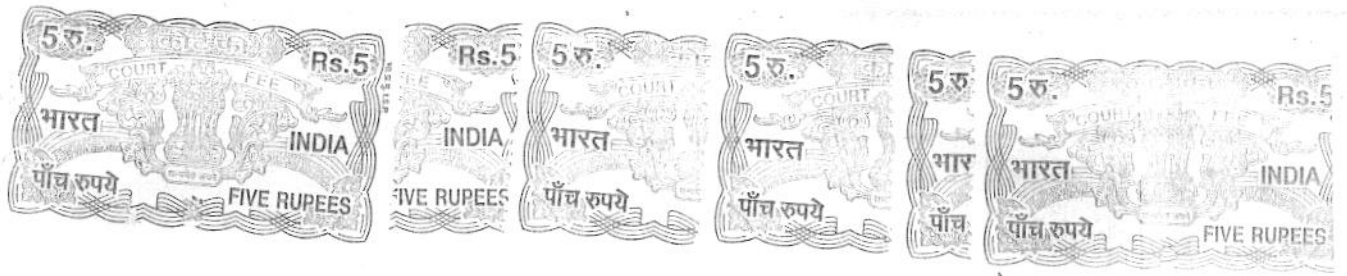 5 रु.
Rs.5
COURT FEE
भारत
INDIA
पाँच रुपये
FIVE RUPEES
Rs.5
INDIA
FIVE RUPEES
5 रु.
COURT
भारत
पाँच रुपये
5 रु.
COURT
भारत
पाँच रुपये
5 रु
भार
पाँच
5 रु.
Rs.5
COURT FEE
भारत
INDIA
पाँच रुपये
FIVE RUPEES